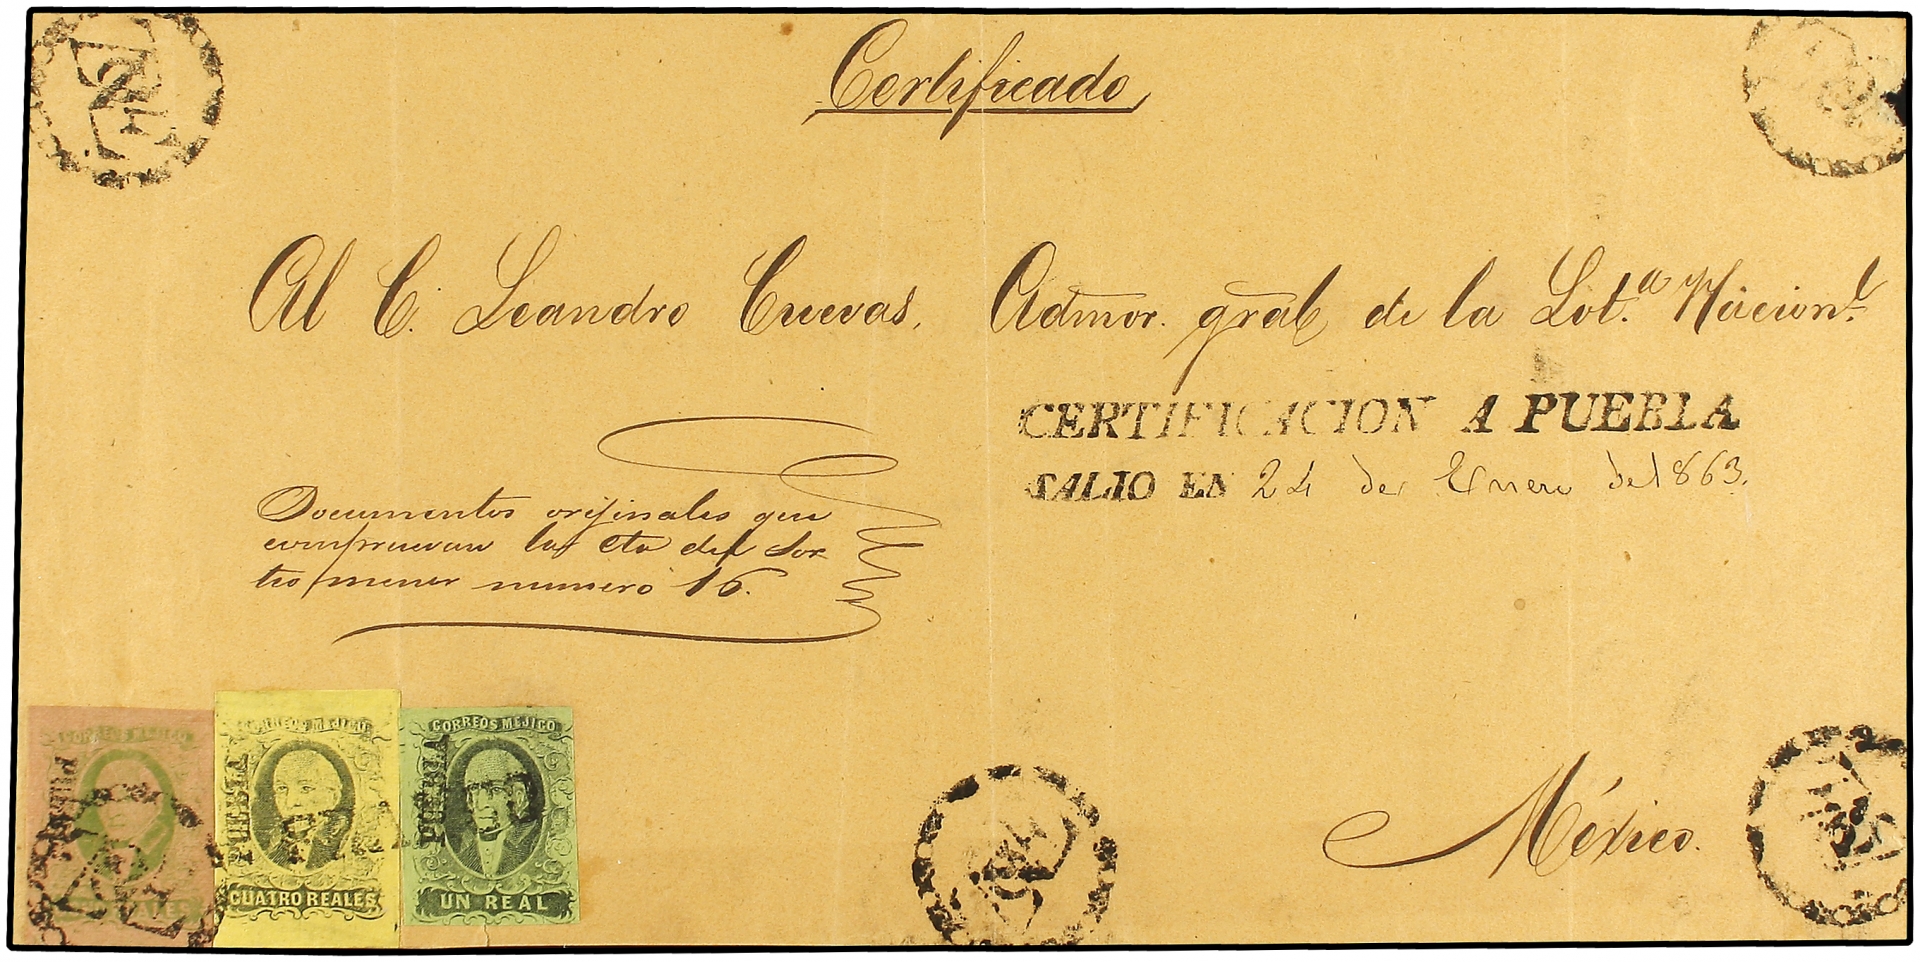 Certificado
Al C. Leandro Cuevas, Admor. gral de la Lot.ª Nacionl.
CERTIFICACION A PUEBLA
SALIO EN 24 de Enero de 1863.
Documentos originales que
compruevan la cta del Sor
teo menor numero 16.
México.
CORREOS MEJICO
PUEBLA
CORREOS MEJICO
PUEBLA
CUATRO REALES
CORREOS MEJICO
PUEBLA
UN REAL